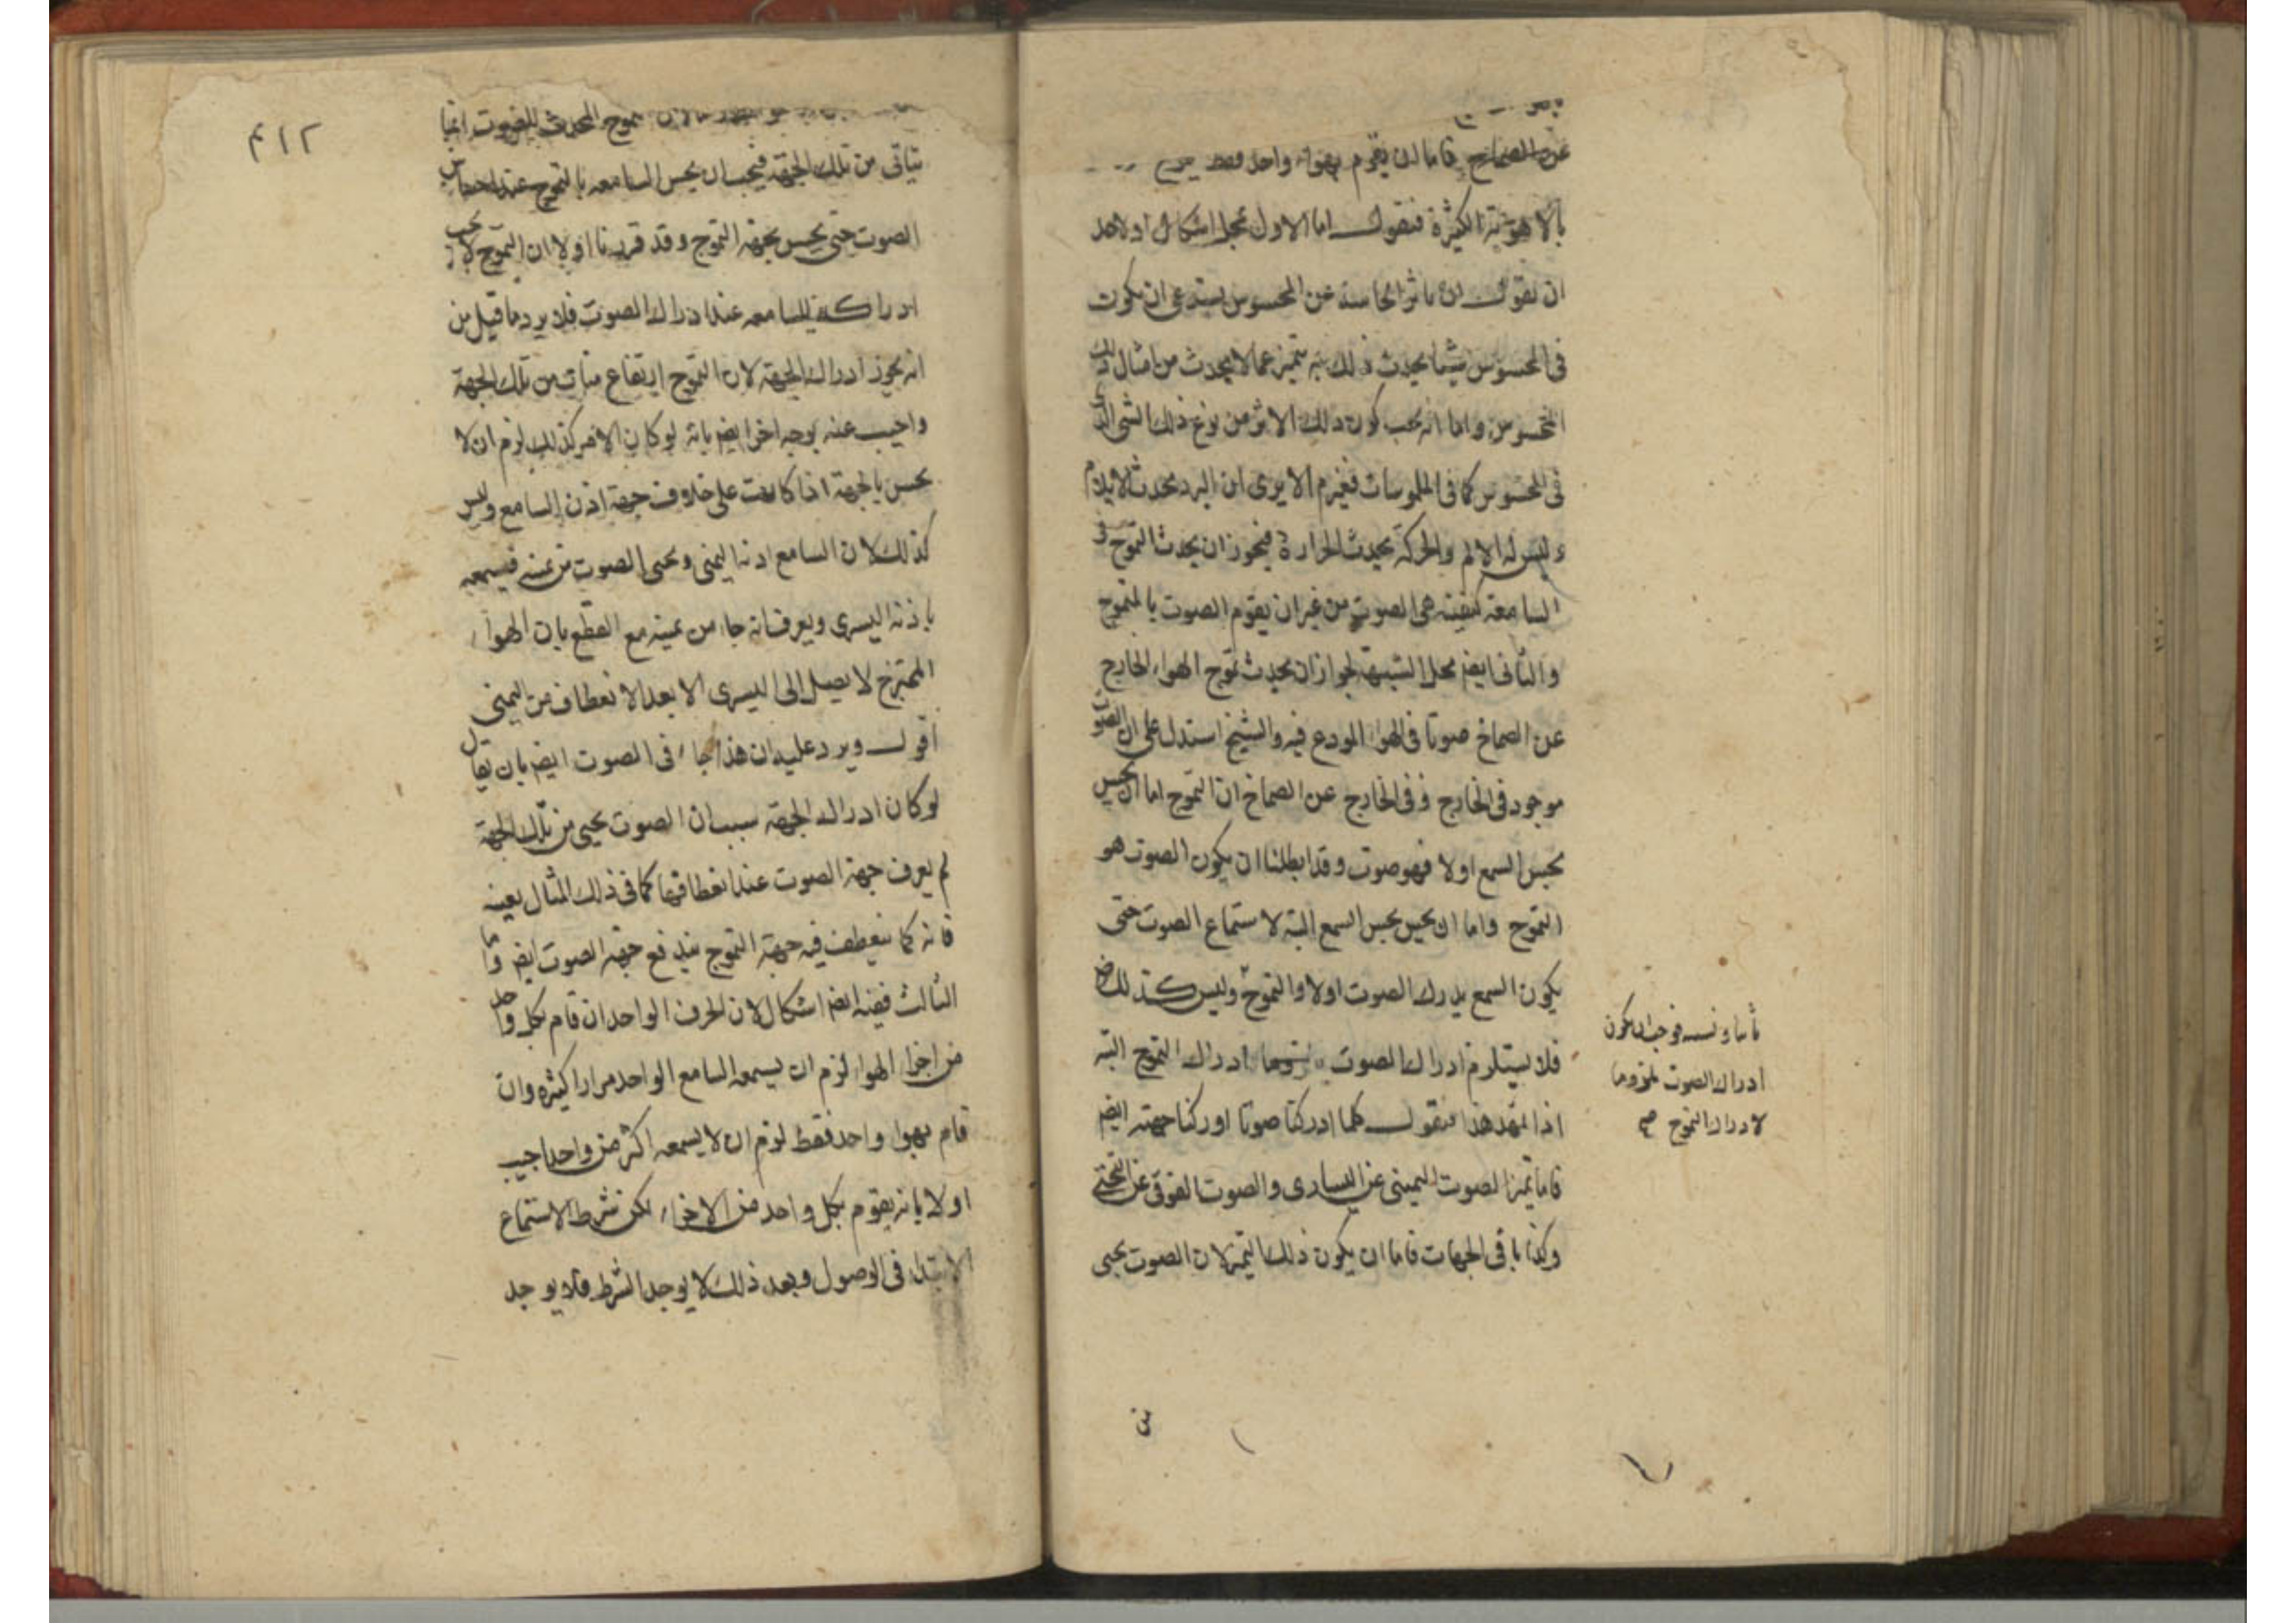 عن الصماخ فاما ان يقوم بهواء واحد فقط
بالاهوية الكثيرة فنقول اما الاول فمحل اشكال اذ لاحد
ان يقول ان تاثر الحاسة عن المحسوس يستدعى ان يكون
فى المحسوس شيئا يحدث ذلك به يتميز عما لا يحدث من امثال ذلك
المحسوس واما انه يجب كون ذلك الاثر من نوع ذلك الشى الذى
فى المحسوس كما فى الملموسات فغير م الا يرى ان البرد يحدث الايلام
وليس له الالم والحركة يحدث الحرارة فيجوز ان يحدث التموج فى
السامعة كيفية هى الصوت من غير ان يقوم الصوت بالمتموج
والثانى ايضا محل الشبهة لجواز ان يحدث تموج الهواء الخارج
عن الصماخ صوتا فى الهواء المودع فيه والشيخ استدل على ان الصوت
موجود فى الخارج و فى الخارج عن الصماخ ان التموج اما ان يحس
بحس السمع اولا فهو صوت وقد ابطلنا ان يكون الصوت هو
التموج واما ان يحس بحس السمع البتة لاستماع الصوت حتى
يكون السمع يدرك الصوت اولا والتموج وليس كذلك
فلا يستلزم ادراك الصوت ادراك التموج البتة
اذا تمهد هذا فنقول كلما ادركنا صوتا ادركنا جهته ايضا
فاما تميز الصوت اليمينى عن اليسارى والصوت الفوقى عن التحتى
وكذا باقى الجهات فاما ان يكون ذلك التميز لان الصوت يجىء
ثانيا فوجب ان يكون
ادراك الصوت ملزوما
لادراك التموج صح
من
٤١٢
تموج المحدث للصوت انما
تياتى من تلك الجهة فيجب ان يحس السامعه بالتموج عند احساس
الصوت حتى يحس بجهة التموج وقد قررنا اولا ان التموج لا يجب
ادراكه للسامعه عند ادراك الصوت فلا يرد ما قيل من
انه يجوز ادراك الجهة لان التموج من تلك الجهة
واجيب عنه بوجه اخر ايضا بانه لو كان الامر كذلك لزم ان لا
يحس بالجهة اذا كانت على خلاف جهة اذن السامع وليس
كذلك لان السامع اذنه اليمنى ويجىء الصوت من يمينه فيسمعه
باذنه اليسرى ويعرف انه جاء من يمينه مع القطع بان الهواء
المتموج لا يصل الى اليسرى الا بعد الانعطاف من اليمنى
اقول ويرد عليه ان هذا جاء فى الصوت ايضا بان يقال
لو كان ادراك الجهة بسبب ان الصوت يجىء من تلك الجهة
لم يعرف جهة الصوت عند انعطافها كما فى ذلك المثال بعينه
فانه كما ينعطف فيه جهة التموج يندفع جهة الصوت ايضا واما
الثالث ففيه ايضا اشكال لان الحرف الواحد ان قام بكل واحد
من اجزاء الهواء لزم ان يسمعه السامع الواحد مرارا كثيره وان
قام بهواء واحد فقط لزم ان لا يسمعه اكثر من واحد اجيب
اولا بانه يقوم بكل واحد من الاجزاء لكن شرط الاستماع
الابتداء فى الوصول وبعد ذلك لا يوجد الشرط فلا يوجد